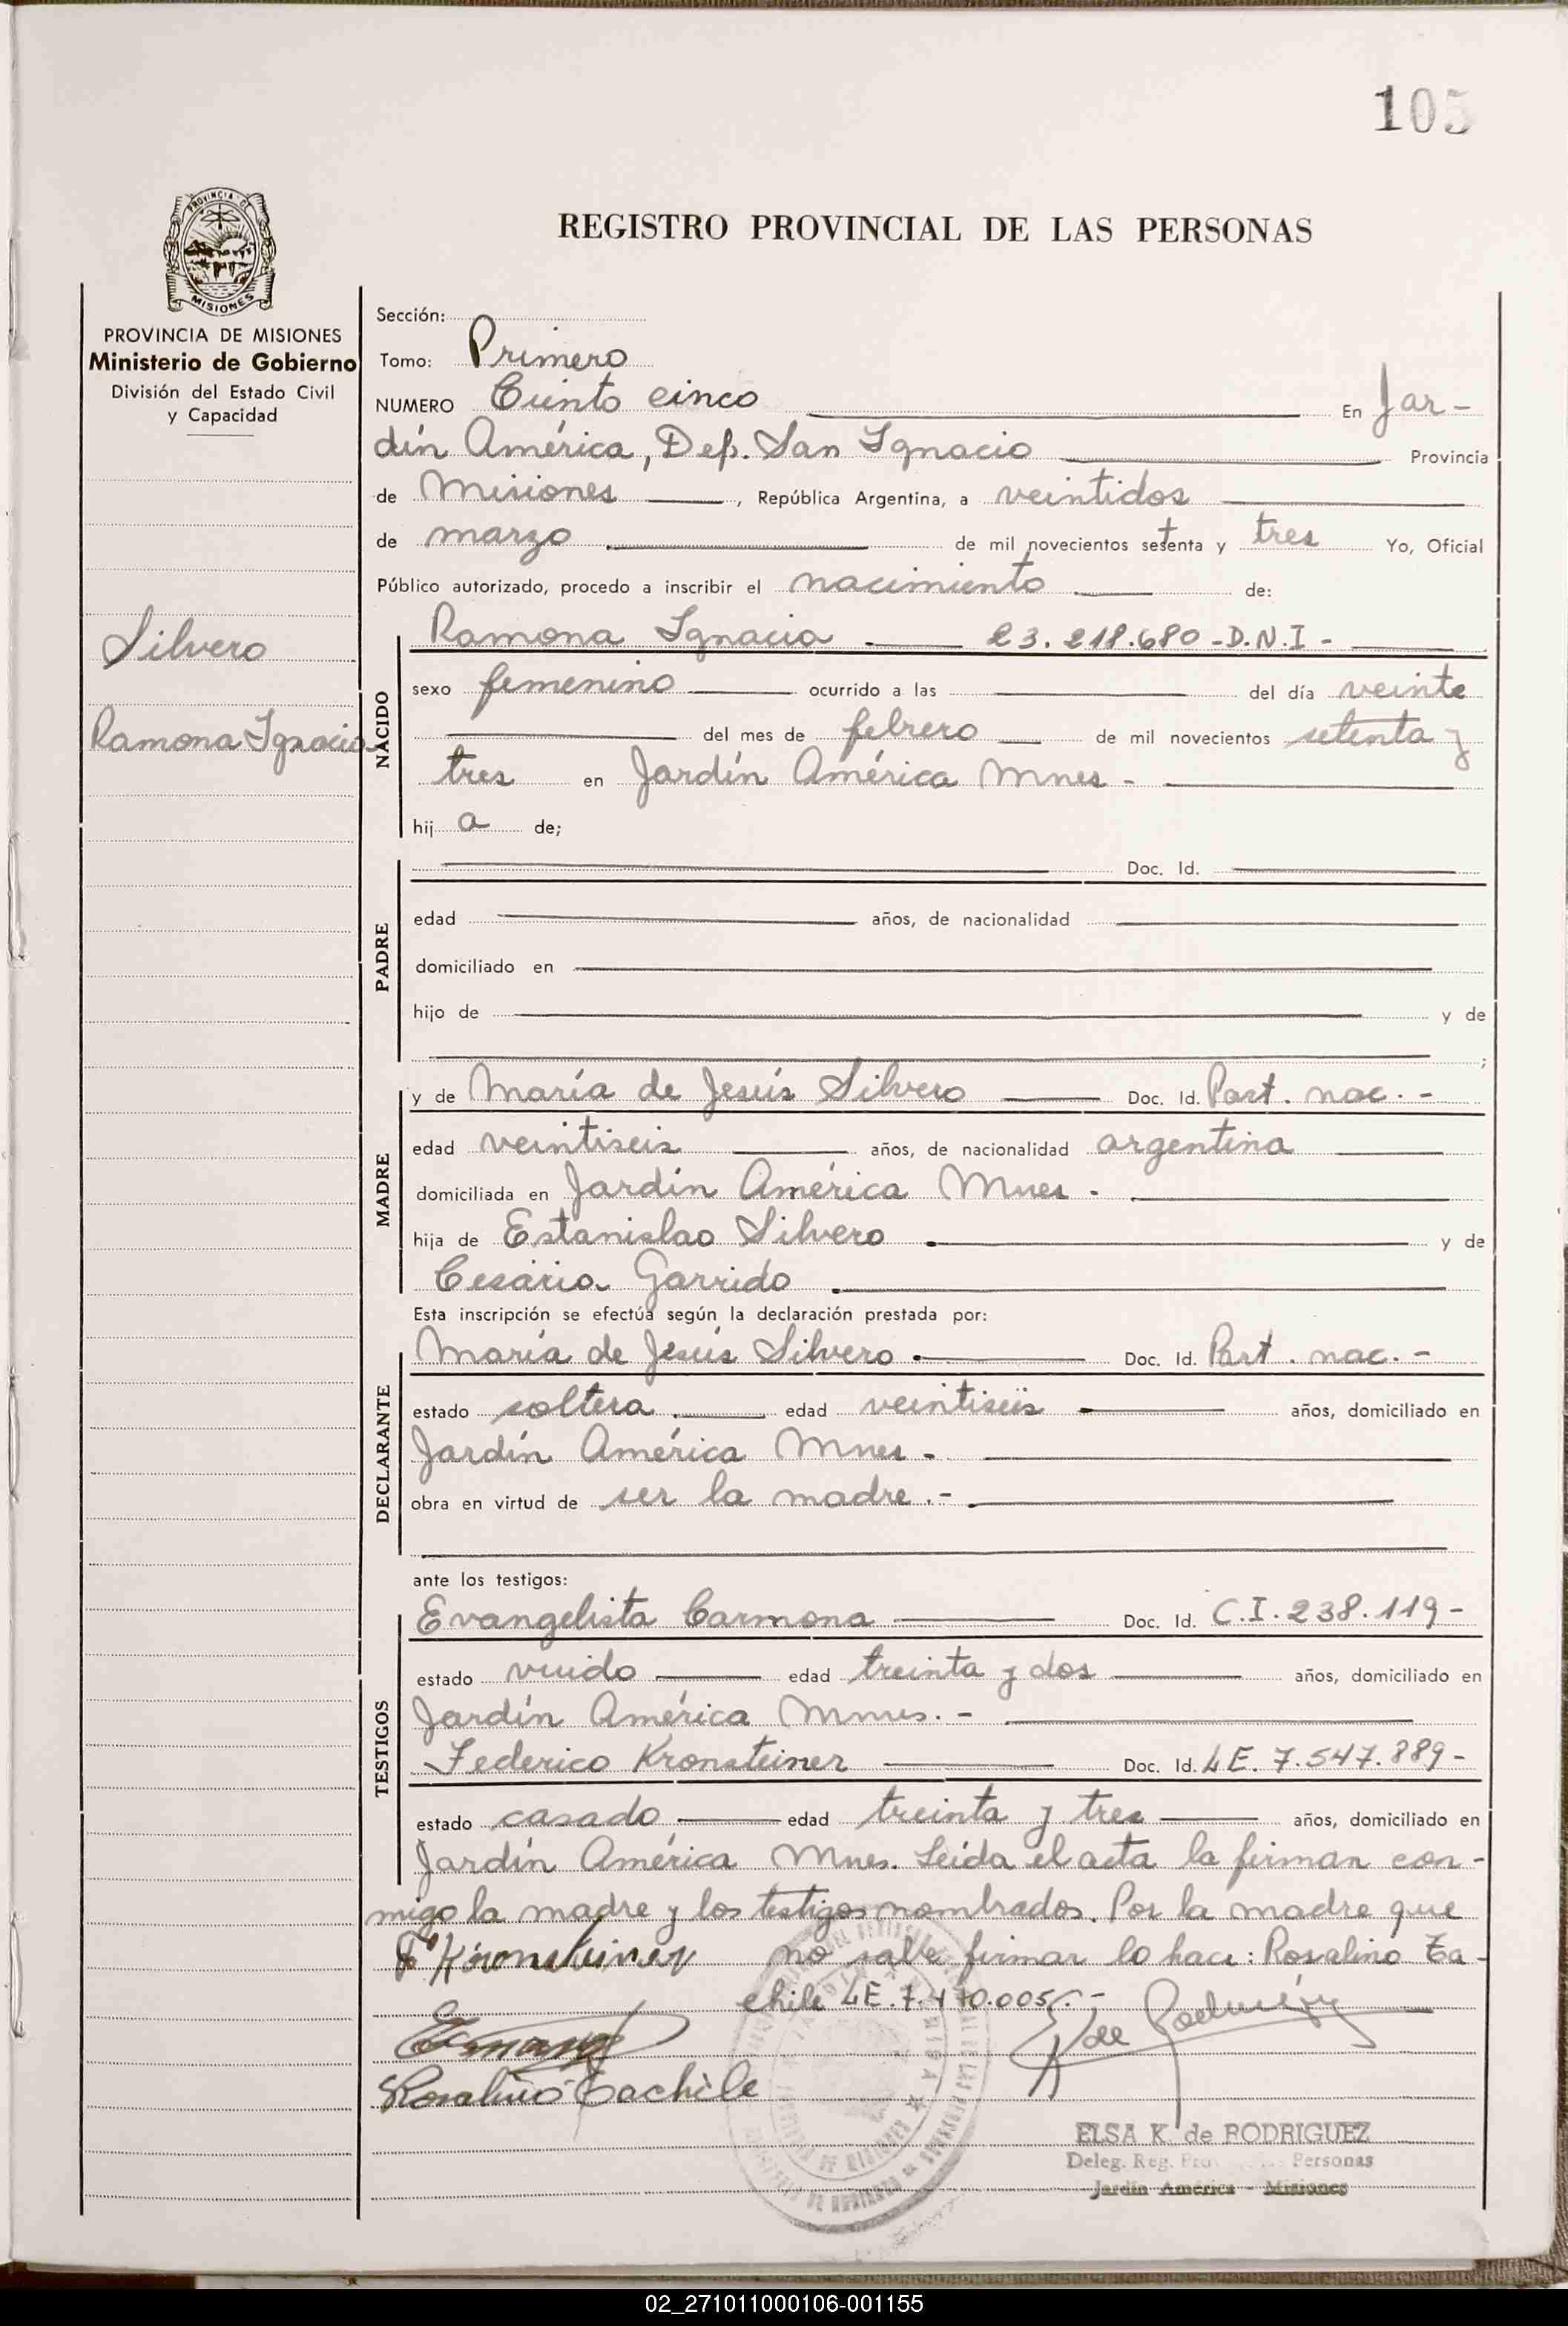 105
PROVINCIA DE
MISIONES
PROVINCIA DE MISIONES
Ministerio de Gobierno
División del Estado Civil
y Capacidad
REGISTRO PROVINCIAL DE LAS PERSONAS
Sección:
Tomo: Primero
NUMERO Ciento cinco En Jar-
dín América, Dep. San Ignacio Provincia
de Misiones, República Argentina, a veintidos
de marzo de mil novecientos setenta y tres Yo, Oficial
Público autorizado, procedo a inscribir el nacimiento de:
Silvero
Ramona Ignacia
NACIDO
Ramona Ignacia 23.218.680-D.N.I-
sexo femenino ocurrido a las del día veinte
del mes de febrero de mil novecientos setenta y
tres en Jardín América Mnes-
hij a de;
PADRE
Doc. Id.
edad años, de nacionalidad
domiciliado en
hijo de y de
;
MADRE
y de María de Jesús Silvero Doc. Id. Part. nac.-
edad veintiseis años, de nacionalidad argentina
domiciliada en Jardín América Mnes.
hija de Estanislao Silvero y de
Cesária Garrido
Esta inscripción se efectúa según la declaración prestada por:
DECLARANTE
María de Jesús Silvero Doc. Id. Part. nac.-
estado soltera. edad veintiseis años, domiciliado en
Jardín América Mnes-
obra en virtud de ser la madre.-
ante los testigos:
TESTIGOS
Evangelista Carmona Doc. Id. C.I.238.119-
estado viudo edad treinta y dos años, domiciliado en
Jardín América Mnes.-
Federico Kronsteiner Doc. Id. LE. 7.547.889-
estado casado edad treinta y tres años, domiciliado en
Jardín América Mnes. Leída el acta la firman con-
migo la madre y los testigos nombrados. Por la madre que
F Kronsteiner no sabe firmar lo hace: Rosalino Ca-
chile LE.7.470.005.-
de Rodriguez
Rosalino Cachile
ELSA K. de RODRIGUEZ
Deleg. Reg. Personas
Jardín América - Misiones
02_271011000106-001155